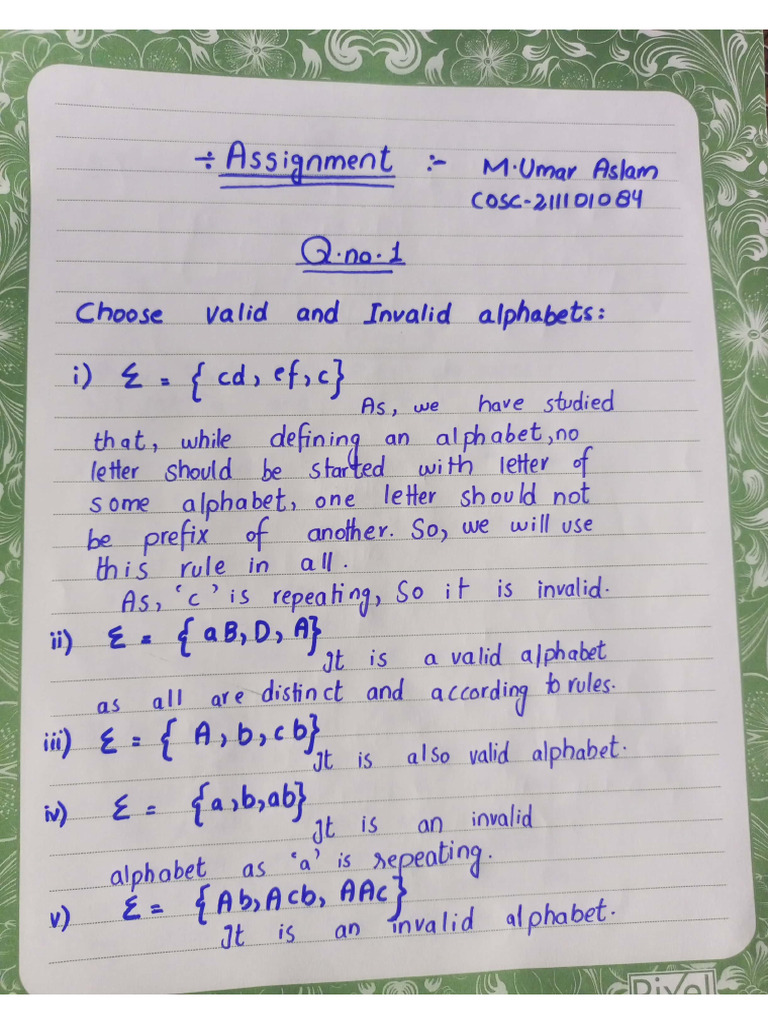 ÷ Assignment :- M.Umar Aslam
COSC-211101084
Q.no.1
Choose valid and Invalid alphabets:
i) Σ = { cd, ef, c}
As, we have studied
that, while defining an alphabet, no
letter should be started with letter of
some alphabet, one letter should not
be prefix of another. So, we will use
this rule in all.
As, 'c' is repeating, So it is invalid.
ii) Σ = { aB, D, A}
It is a valid alphabet
as all are distinct and according to rules.
iii) Σ = { A, b, cb}
It is also valid alphabet.
iv) Σ = {a, b, ab}
It is an invalid
alphabet as 'a' is repeating.
v) Σ = {Ab, Acb, AAc}
It is an invalid alphabet.